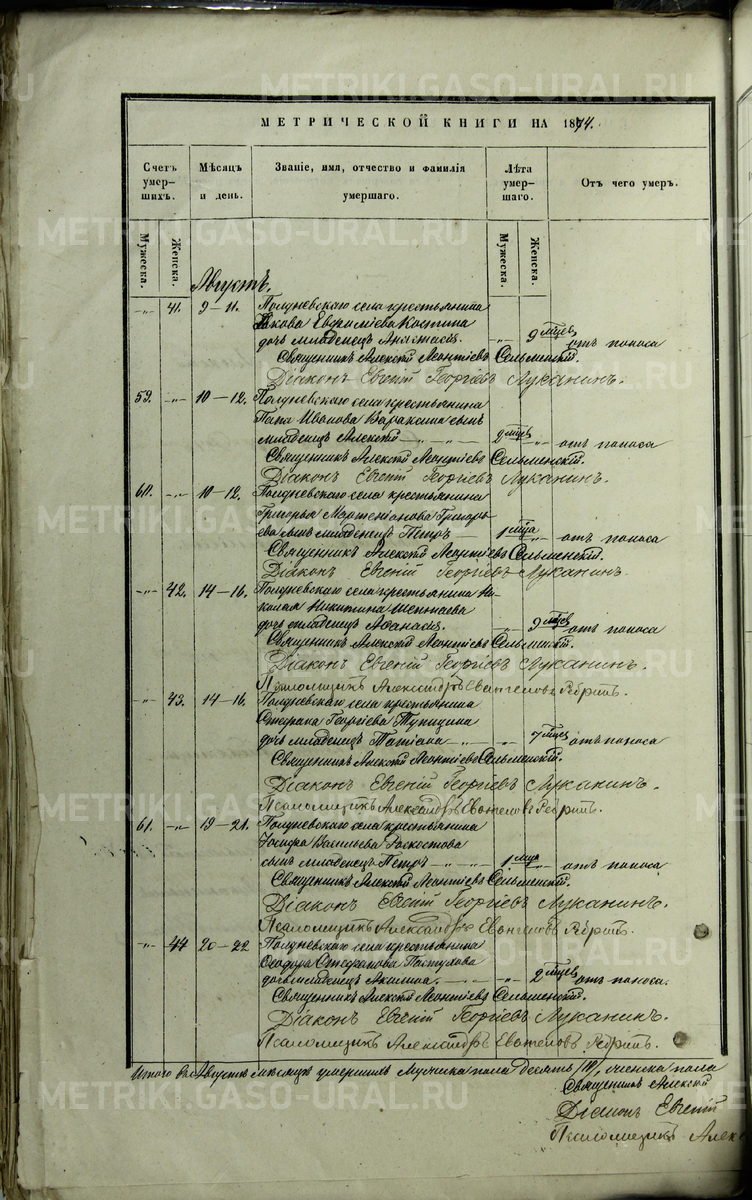 МЕТРИЧЕСКОЙ КНИГИ НА 1874.
Счетъ умер- шихъ.
Мѣсяцъ и день.
Званіе, имя, отчество и фамилія умершаго.
Лѣта умер- шаго.
Отъ чего умеръ.
Мужеска. Женска. Мужеска. Женска.
Августъ.
-"- 41. 9-11. Полдневскаго села крестьянина
Іакова Евфиміева Костина
дочь младенецъ Анастасія. -"- 9 мцевъ отъ поноса
Священникъ Алексѣй Леонтіевъ Сельменскій.
Діаконъ Евгеній Георгіевъ Луканинъ.
59. -"- 10-12. Полдневскаго села крестьянина
Ивановa Вараксина сынъ
младенецъ Алексѣй -"- 2 мцевъ -"- отъ поноса
Священникъ Алексѣй Леонтіевъ Сельменскій.
Діаконъ Евгеній Георгіевъ Луканинъ.
60. -"- 10-12. Полдневскаго села крестьянина
Григорья Григорь-
ева сынъ младенецъ Петръ - 1 мца -"- отъ поноса
Священникъ Алексѣй Леонтіевъ Сельменскій.
Діаконъ Евгеній Георгіевъ Луканинъ.
-"- 42. 14-16. Полдневскаго села крестьянина Ни-
колая Никитина
дочь младенецъ Аѳанасія. -"- 9 мцевъ отъ поноса
Священникъ Алексѣй Леонтіевъ Сельменскій.
Діаконъ Евгеній Георгіевъ Луканинъ.
Псаломщикъ Александръ Евангеловъ
-"- 43. 14-16. Полдневскаго села крестьянина
Стефана Георгіева Тупицина
дочь младенецъ Татіана -"- -"- 7 мцев отъ поноса
Священникъ Алексѣй Леонтіевъ Сельменскій.
Діаконъ Евгеній Георгіевъ Луканинъ.
Псаломщикъ Александръ Евангеловъ
61. -"- 19-21. Полдневскаго села крестьянина
Іосифа Васильева
сынъ младенецъ Петръ -"- 1 мца -"- отъ поноса
Священникъ Алексѣй Леонтіевъ Сельменскій.
Діаконъ Евгеній Георгіевъ Луканинъ.
Псаломщикъ Александръ Евангеловъ
-"- 44 20-22 Полдневскаго села крестьянина
Ѳеодора Стефанова Пастухова
дочь младенецъ Акилина. -"- 2 мцевъ отъ поноса.
Священникъ Алексѣй Леонтіевъ Сельменскій.
Діаконъ Евгеній Георгіевъ Луканинъ.
Псаломщикъ Александръ Евангеловъ
Итого въ Августѣ мѣсяцѣ умершихъ Мужска пола десять /10/, женска пола
Священникъ Алексѣй
Діаконъ Евгеній
Псаломщикъ Алек
METRIKI.GASO-URAL.RU